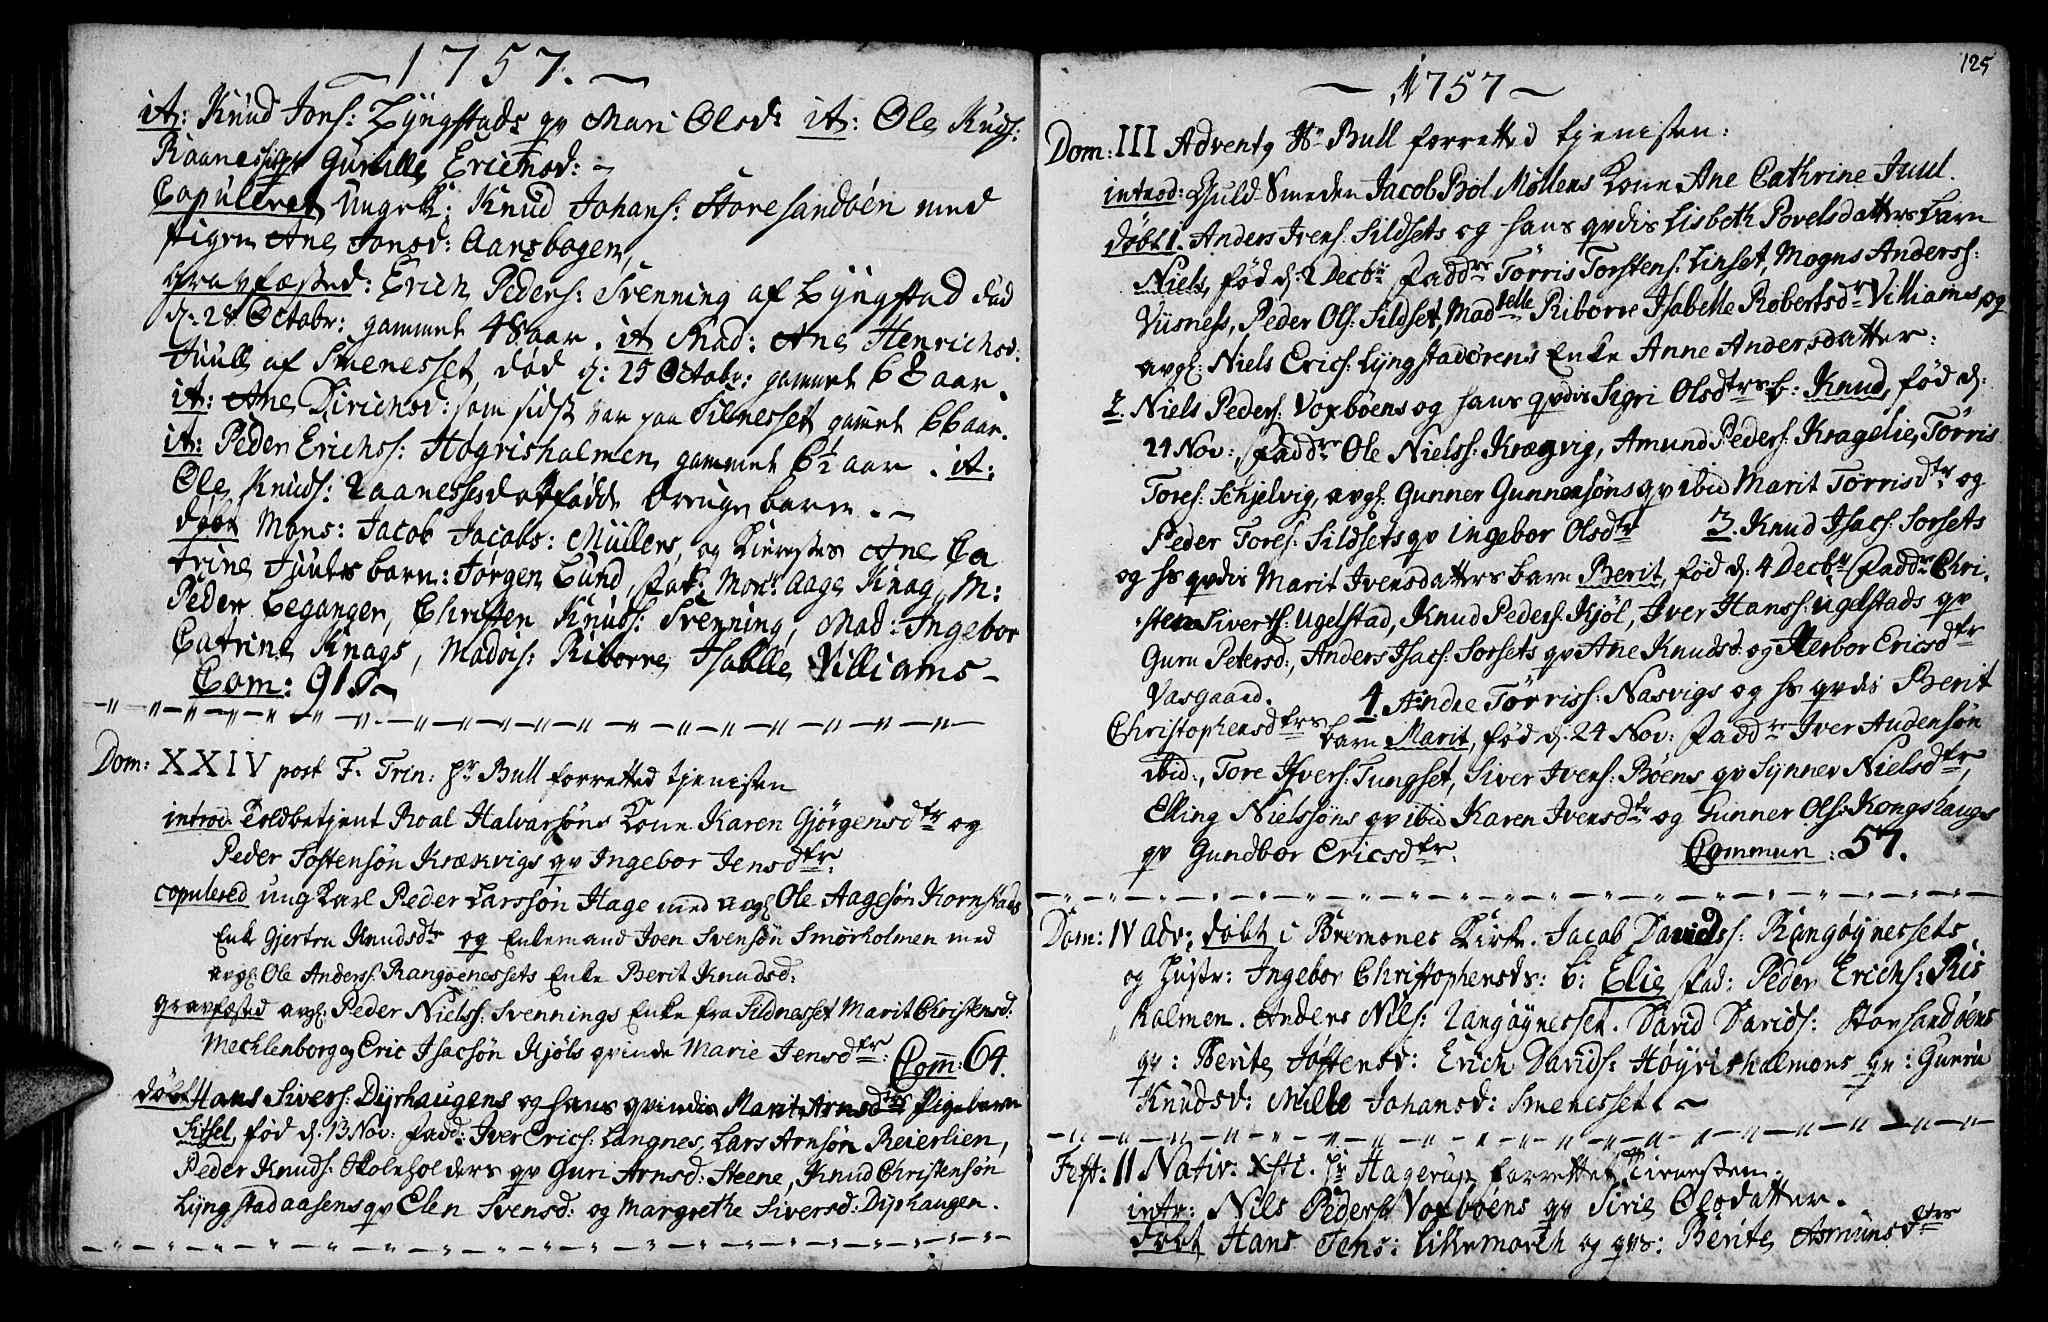 1757.
it: Knud Jons: Lyngstads qv Mari Olsd: it: Ole Knds:
Raanes qv Gunille Erichsd:
Copuleret Ungk: Knud Johans: Storesandøen med
pigen Ane Jonsd: Aarsbogen,
gravfæsted: Erich Peders: Svenning af Lyngstad død
d: 28 Octobr: gammel 48 aar. it Mad: Ane Henrichsd:
Juul af Smenesset, død d: 25 Octobr: gammel 68 aar
it: Ane Dirichsd: som sidst var paa Silnesset gamel 66 aar.
it: Peder Erichss: Høgrisholmen gammel 6½ aar. it:
Ole Knuds: Raanesses dødfødde Drenge barn.
døbt Mons: Jacob Jacobs: Müllers, og Kierestes Ane Ca
trine Juuls barn: Jørgen Lund, Fad: Monr: Aage Knag, M:
Peder Leganger, Christen Knuds: Svenning, Mad: Ingebor
Catrine Knags, Madois: Riborre Isabelle Villiams
Com: 91.
Dom: XXIV post F. Trin: Hr Bull forretted tjenisten
introd. Toldbetjent Roal Halvarsøns Kone Karen Gjørgensdtr og
Peder Tostensøn Krækvigs qv Ingebor Jensdtr:
copulered ung Karl Peder Larssøn Hage med avgl Ole Aagesøn Kornstads
Enke Gjertru Knudsdtr og Enkemand Joen Svensøn Smørholmen med
avgl Ole Anders: Rangøenessets Enke Berit Knudsd:
gravfæsted avgl: Peder Nielss: Svennings Enke fra Sildnesset Marit Christensd:
Mechlenborg og Eric Isacsøn Kjøls qvinde Marie Jensdtr: Com: 64.
døbt Hans Sivers: Dyrhaugens og hans qvindis Marit Arnsdtrs Pigebarn
Sitsel, fød d. 13 Nov: fadd: Iver Erics: Langnes, Lars Arnsøn Reierlien,
Peder Knuds: Skoleholders qv Guri Arnsd: Steene, Knud Christensøn
Lyngstadaasens qv Elen Svensd: og Margrethe Siversd: Dyrhaugen.
125
1757
Dom: III Adventq Hr Bull forretted tjenisten:
introd: Guld-Smeden Jacob Bol Møllens Kone Ane Cathrine Juul.
døbt 1. Anders Ivers: Sildsets og hans qvdis Lisbeth Povelsdatters barn
Niels, fød d. 2 Decbr Faddre Tørris Torstens: Linset, Mogns Anderss:
Viisness, Peder Ols: Sildset, Madselle Riborre Isabelle Robertsdr Villiams, og
avgl: Niels Erics: Lyngstadørens Enke Anne Andersdatter:
2. Niels Peders: Voxbøens og hans qvdis Sigri Olsdtrs b: Knud, fød d:
24 Nov: Faddre Ole Nielss: Krægvig, Amund Peders: Kragelie, Tørris
Tores: Schjelvig, avgl: Gunner Gunnersøns qv ibid Marit Tørrisdtr og
Peder Tores: Sildsets qv Ingebor Olsdtr 3. Knud Isacs: Sorsets
og hs qvdis Marit Iversdatters barn Berit, fød d. 4 Decbr Faddre Chri-
sten Siverts: Ugelstad, Knud Peders: Kjøl, Iver Hanss: Ugelstads qv
Guru Petersd:, Anders Isacs: Sorsets qv Ane Knudsd: og Herbor Ericsdtr
Vasgaard. 4. Andre Tørriss: Nasvigs og hs qvdis Berit
Christophersdtrs barn Marit, fød d. 24 Nov: Faddre Iver Audensøn
ibid:, Tore Ifvers: Tungset, Siver Ivers: Bøens qv Synnev Nielsdtr,
Elling Nielssøns qv ibid Karen Iversdtr og Gunner Ols: Kongshaugs
qv Gundbor Ericsdtr: Commun: 57.
Dom: IV Adv: døbt i Bremones Kirke. Jacob Davids: Rangøynessets
og Hustr: Ingebor Christophersds: b: Elie, fad: Peder Erichs: Ris
holmen. Anders Nils: Rangøynesset. David Davids: Storsandøens
qv: Berite Jøstensd: Erich Davids: Høyrisholmens qv: Gurru
Knudsd: Mille Johansd: Smenesset
Fest: II Nativ: Xsti. Hr Hagerup forrettet Tienesten.
intr: Nils Peders: Voxbøens qv Sirie Olsdatter.
døbt Hans Jens: Lillemoreh og qvs: Berite Asmunsdtrs